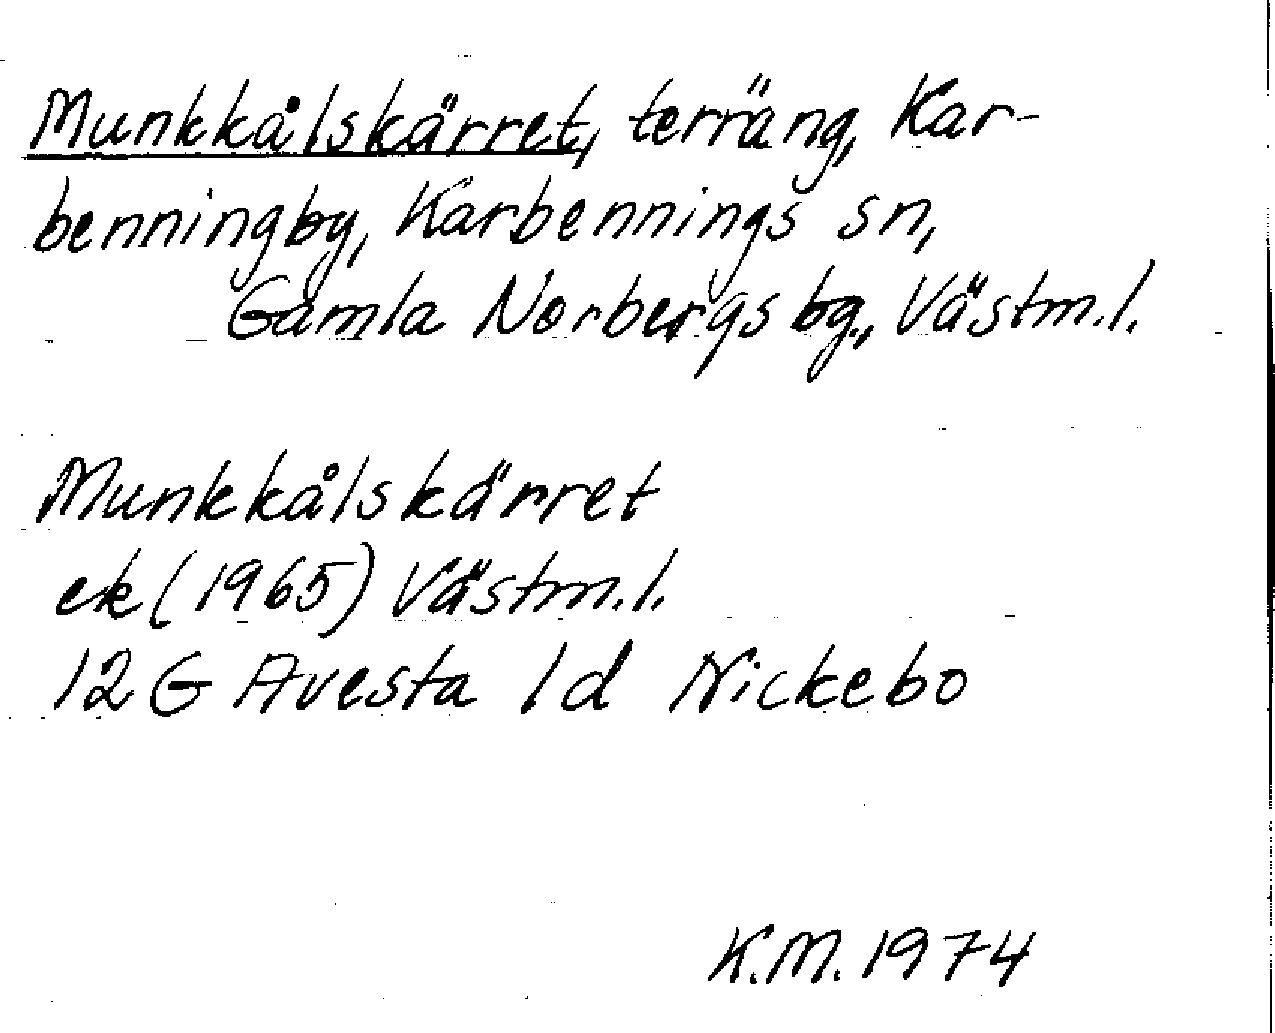 Munkkålskärret, terräng, Kar-
benningby, Karbennings sn,
Gamla Norbergs bg., Västm.l.
Munkkålskärret
ek (1965) Västm.l.
12 G Avesta 1d Nickebo
K.M. 1974